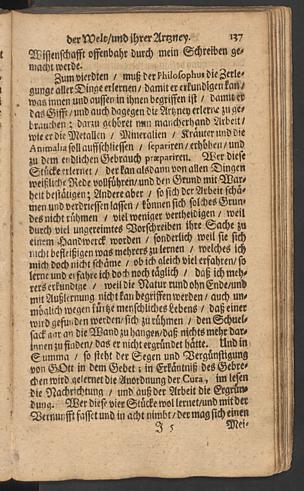 der Welt/und ihrer Artzney. 137
Wissenschafft offenbahr durch mein Schreiben ge-
macht werde.
Zum vierdten / muß der Philosophus die Zerle-
gunge aller Dinge erlernen / damit er erkundigen kan/
was innen und aussen in ihnen begriffen ist / damit er
das Gifft / und auch dagegen die Artzney erlerne zu ge-
brauchen; darzu gehöret nun mancherhand Arbeit/
wie er die Metallen / Mineralien / Kräuter und die
Animalia soll auffschliessen / separiren / erhöhen / und
zu dem endlichen Gebrauch præpariren. Wer diese
Stücke erlernet / der kan alsdann von allen Dingen
weißliche Rede vollführen/und den Grund mit War-
heit bestätigen; Andere aber / so sich der Arbeit schä-
men und verdriessen lassen / können sich solches Grun-
des nicht rühmen / viel weniger vertheidigen / weil
durch viel ungereimtes Vorschreiben ihre Sache zu
einem Handwerck worden / sonderlich weil sie sich
nicht befleißigen was mehrers zu lernen / welches ich
mich doch nicht schäme / ob ich gleich viel erfahren / so
lerne und erfahre ich doch noch täglich / daß ich meh-
rers erkundige / weil die Natur rund ohn Ende/und
mit Außlernung nicht kan begriffen werden / auch un-
möblich wegen kürtze menschliches Lebens / daß einer
wird gefunden werden/ sich zu rühmen / den Schuel-
sack gar an die Wand zu hangen/daß nichts mehr dar-
innen zu finden / das er nicht ergründet hätte. Und in
Summa / so steht der Segen und Vergünstigung
von GOtt in dem Gebet; in Erkäntniß des Gebre-
chen wird gelernet die Anordnung der Cura, im lesen
die Nachrichtung / und auß der Arbeit die Ergrün-
dung. Wer diese vier Stücke wol lernet/und mit der
Vernunfft fasset und in acht nimbt / der mag sich einen
J 5 Mei-